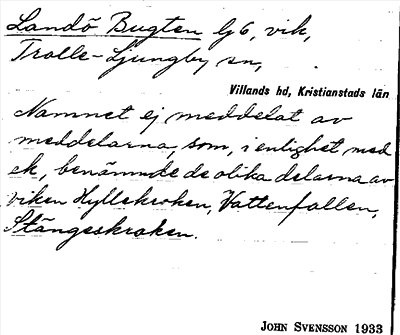 Landö Bugten Lj6, vik,
Trolle-Ljungby sn,
Villands hd, Kristianstads län
Namnet ej meddelat av
meddelarna, som, i enlighet med
ek, benämnde de olika delarna av
viken Hyllekroken, Vattenfallen,
Stångeskroken.
JOHN SVENSSON 1933